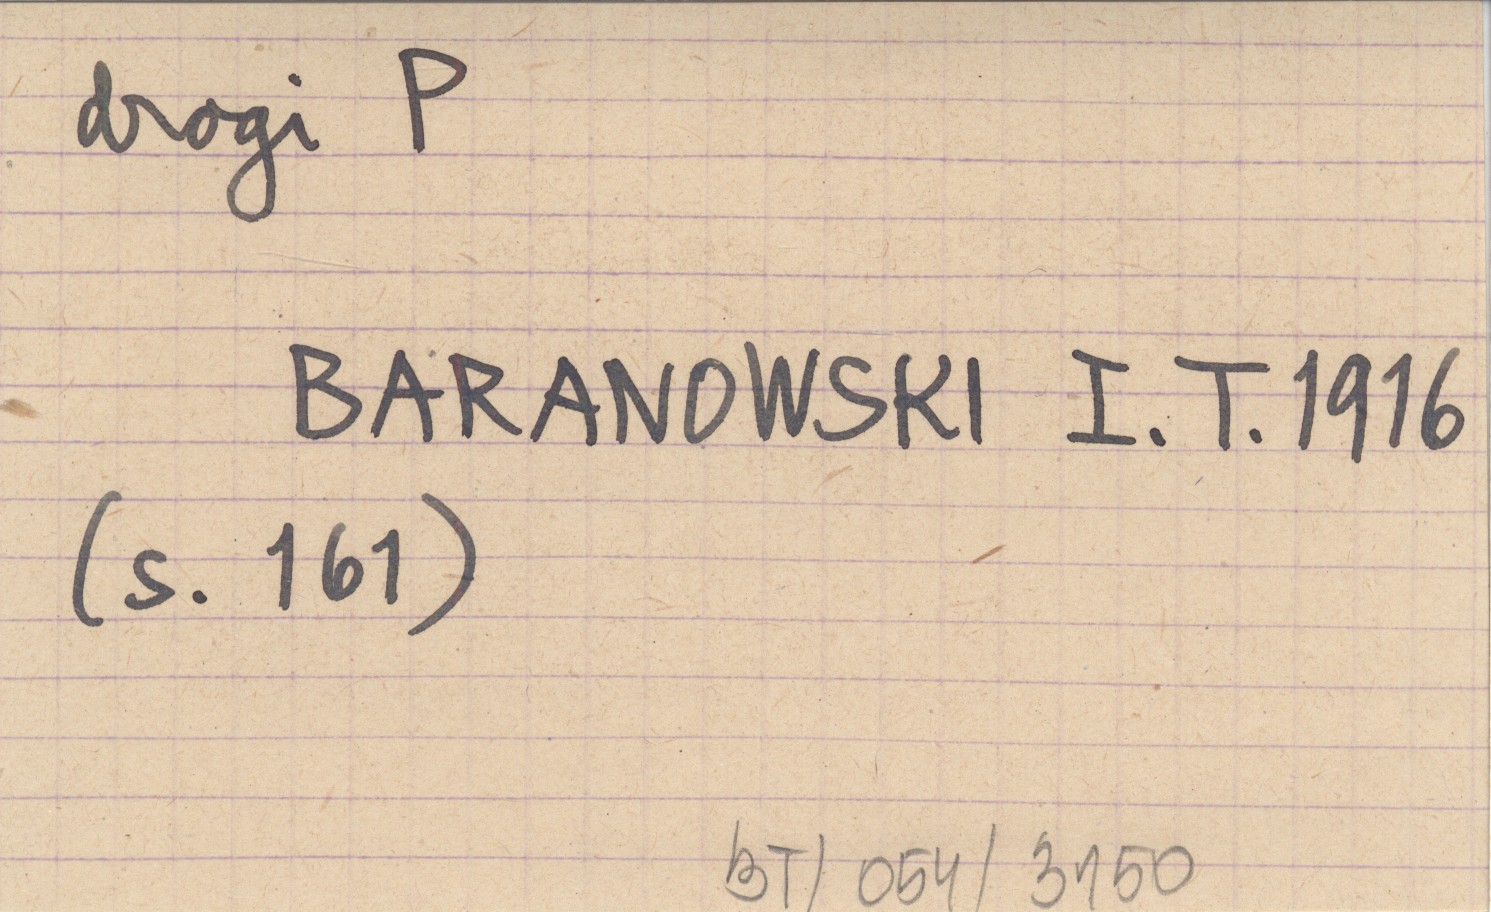 drogi P
BARANOWSKI I.T. 1916
(s. 161)
BT/054/3150